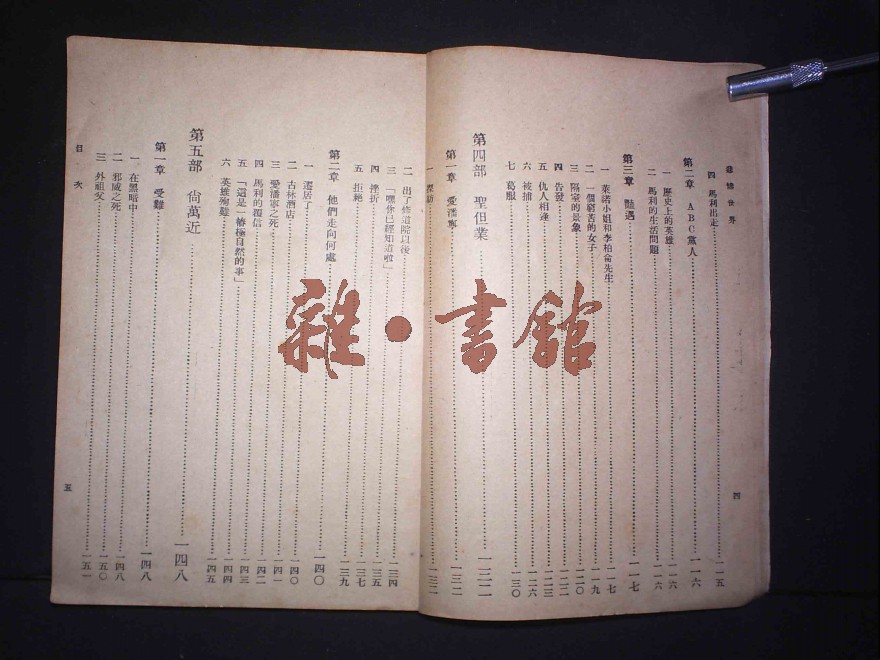 悲慘世界
四 馬利出走 一一五
第二章 ABC黨人 一一六
一 歷史上的英雄 一一六
二 馬利的生活問題 一一六
第三章 豔遇 一一七
一 萊諾小姐和李柏侖先生 一一七
二 一個窮苦的女子 一一九
三 隔室的景象 一二〇
四 告發 一二二
五 仇人相逢 一二三
六 被捕 一二六
七 葛服 一三〇
第四部 聖但業 一三二
第一章 愛潘寧 一三二
一 一三二
二 出了修道院以後 一三四
三 「嘿你已經知道啦」 一三四
四 挫折 一三五
五 拒絕 一三七
第二章 他們走向何處 一四〇
一 遷居了 一三九
二 古林酒店 一四〇
三 愛潘寧之死 一四一
四 馬利的覆信 一四二
五 「這是一樁極自然的事」 一四三
六 英雄殉難 一四四
第五部 尙萬近 一四八
第一章 受難 一四八
一 在黑暗中 一四八
二 邪威之死 一五〇
三 外祖父 一五一
目次
四
五
雜·書館